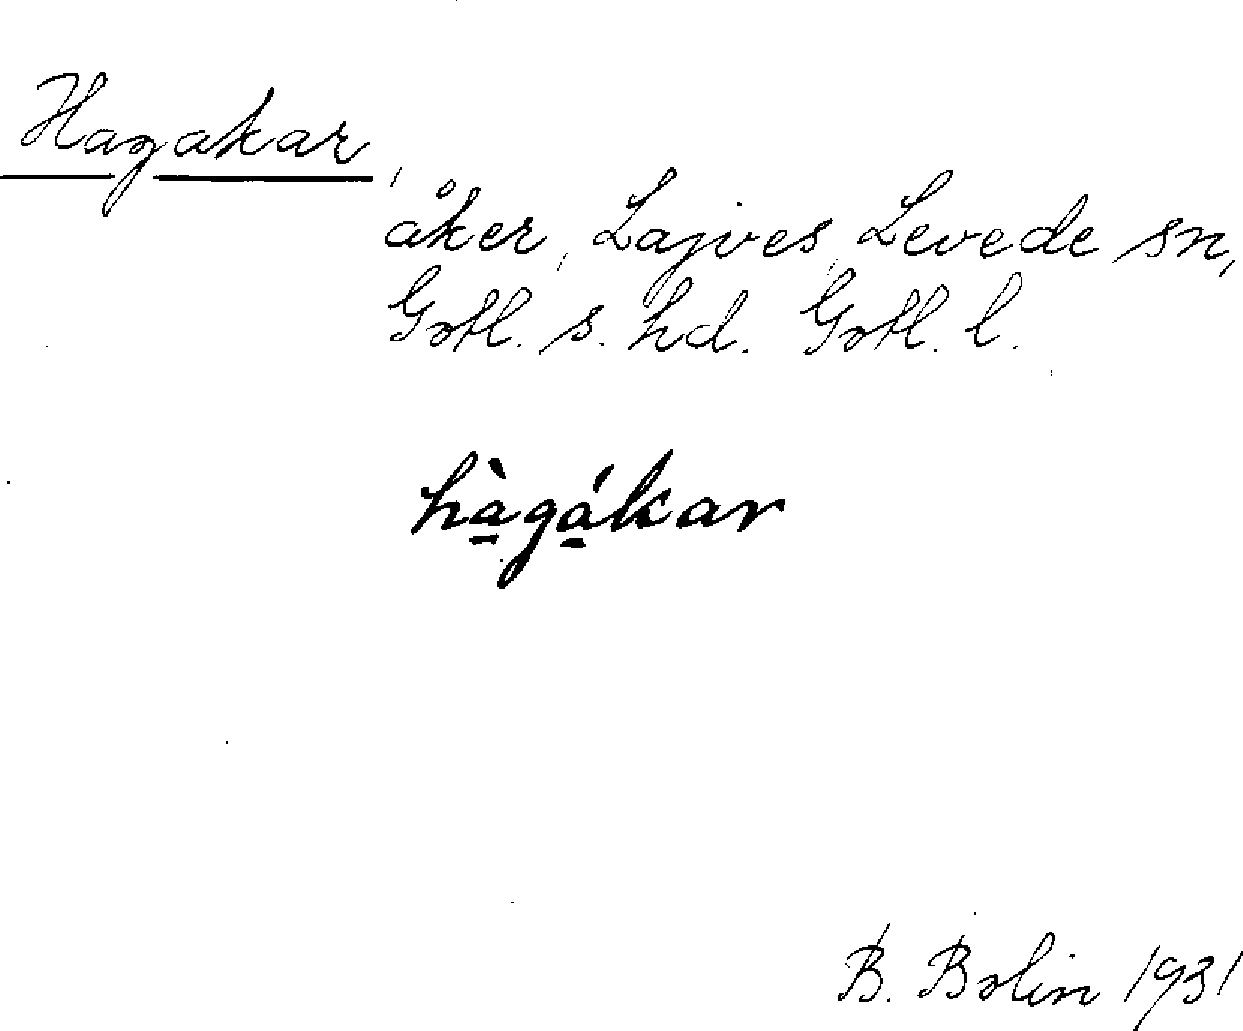 Hagakar,
åker, Lajves, Levede sn,
Gotl. s. hd. Gotl. l.
hàgákar
B. Bolin 1931